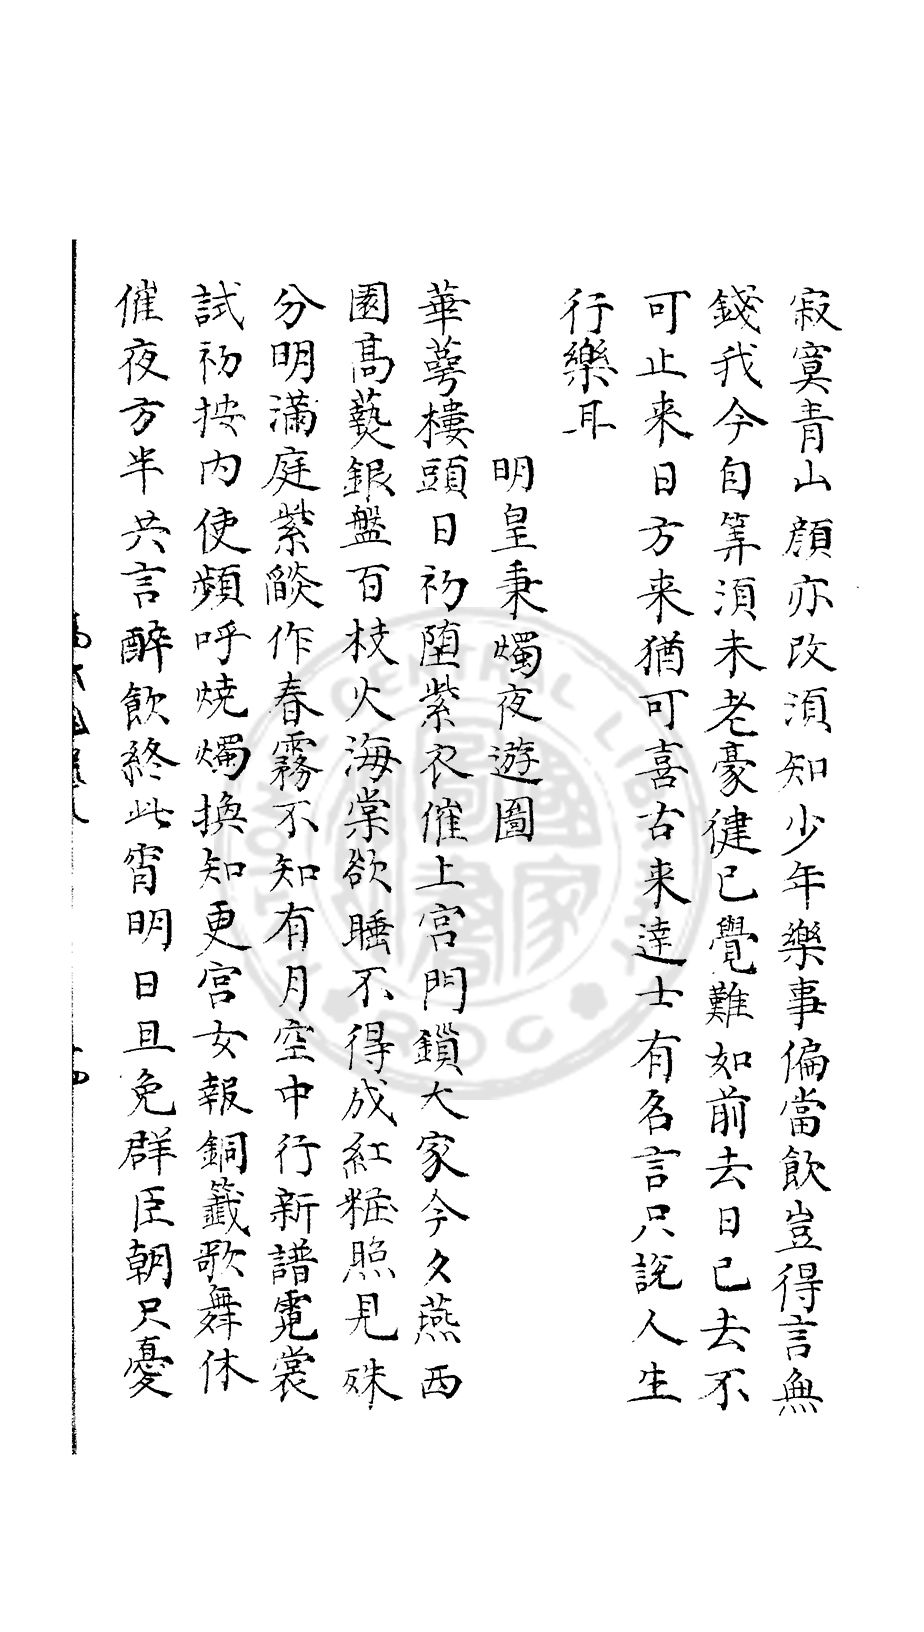 寂寞青山顏亦改湏知少年樂事偏當飲豈得言無
錢我今自筭湏未老豪健已覺難如前去日已去不
可止来日方来猶可喜古来逹士有名言只說人生
行樂耳
明皇秉燭夜遊圖
華萼樓頭日初堕紫衣催上宫門鎖大家今久燕西
園高爇銀盤百枝火海棠欲睡不得成紅粧照見殊
分明滿庭紫燄作春霧不知有月空中行新譜霓裳
試初按内使頻呼燒燭換知更宫女報銅籤歌舞休
催夜方半共言醉飲終此宵明日且免群臣朝只憂
NATIONAL CENTRAL LIBRARY
ROC
國家圖書館